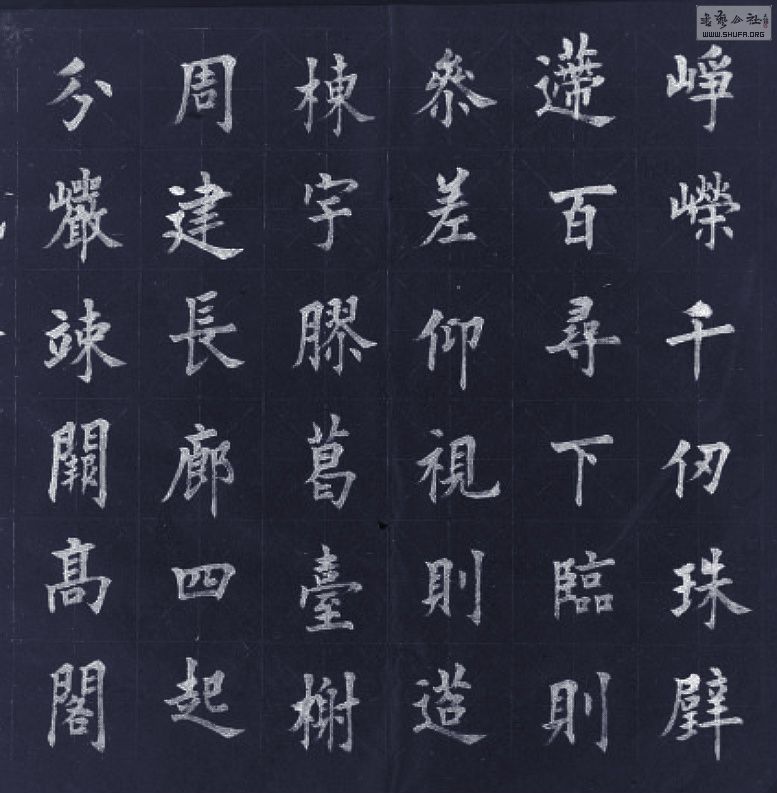 分巖竦闕髙閣
周建長廊四起
棟宇膠葛臺榭
參差仰視則迢
遰百尋下臨則
崢嶸千仞珠璧
書藝公社
WWW.SHUFA.ORG